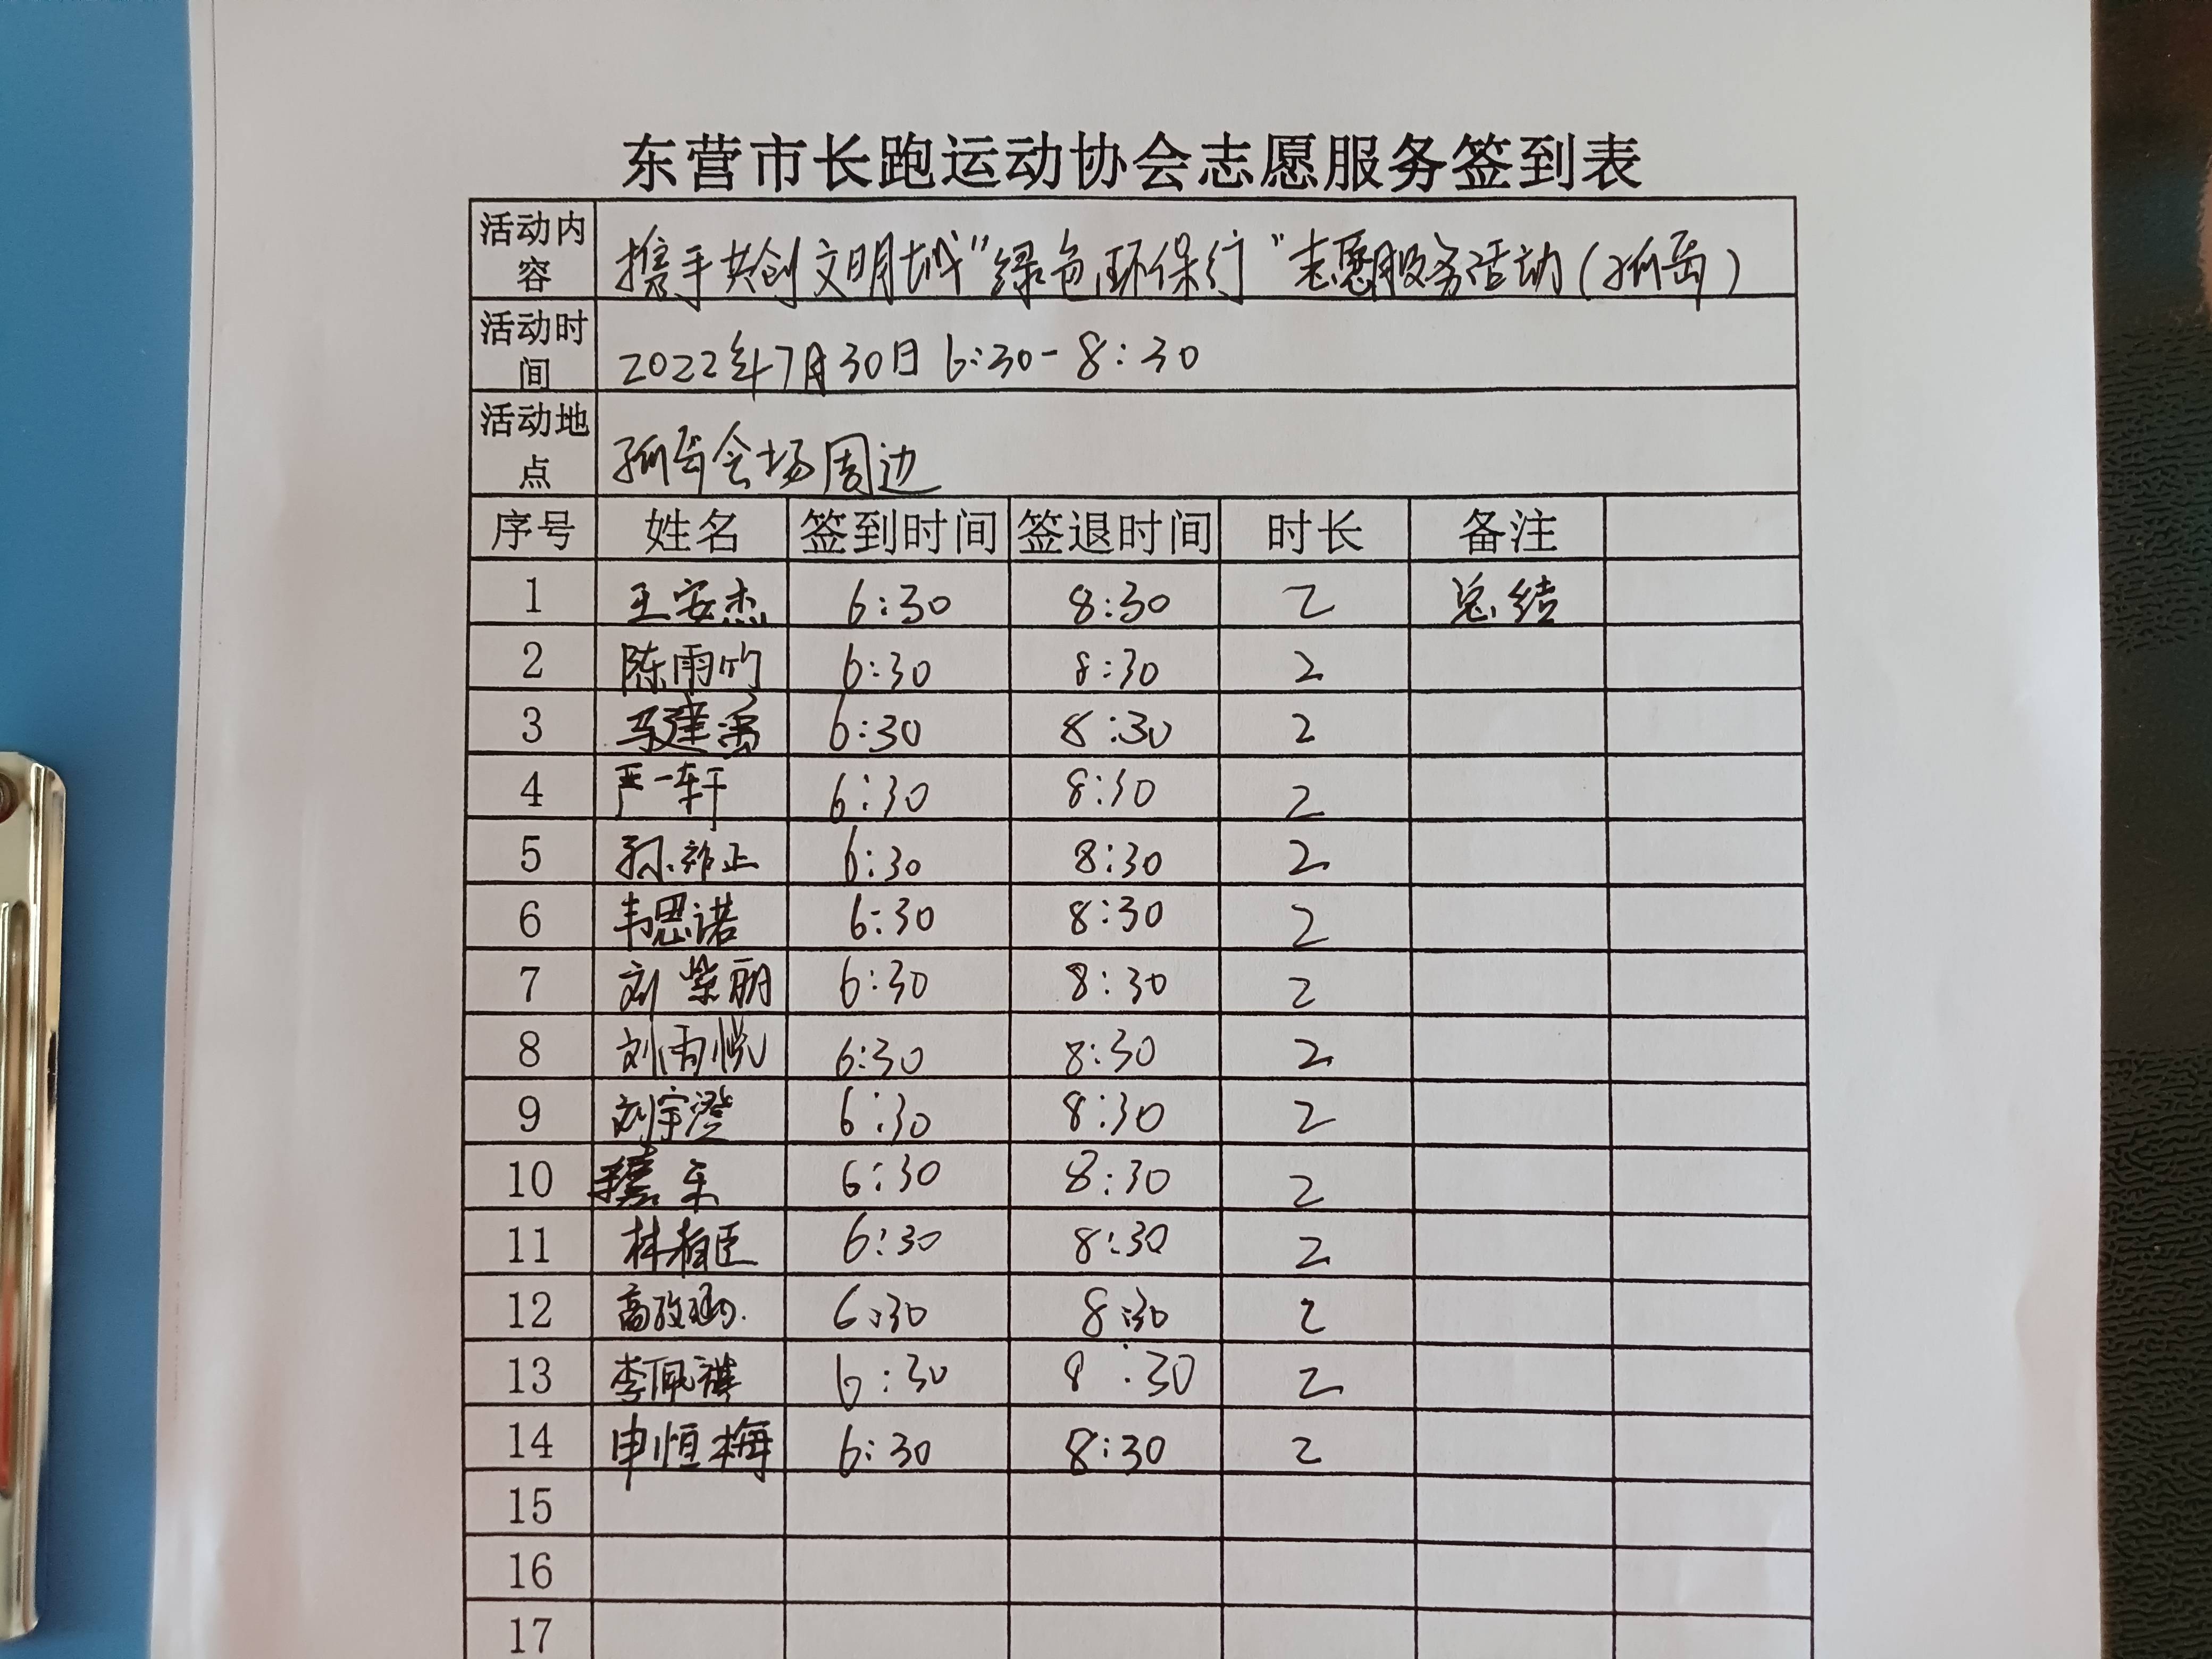 东营市长跑运动协会志愿服务签到表
活动内容 携手共创文明城“绿色环保行”志愿服务活动(孤岛)
活动时间 2022年7月30日 6:30-8:30
活动地点 孤岛会场周边
序号 姓名 签到时间 签退时间 时长 备注
1 王安杰 6:30 8:30 2 总结
2 陈雨竹 6:30 8:30 2
3 马建 6:30 8:30 2
4 严一轩 6:30 8:30 2
5 孙 正 6:30 8:30 2
6 韦思诺 6:30 8:30 2
7 刘紫玥 6:30 8:30 2
8 刘雨悦 6:30 8:30 2
9 刘宇澄 6:30 8:30 2
10 6:30 8:30 2
11 林 臣 6:30 8:30 2
12 高 涵 6:30 8:30 2
13 李佩祺 6:30 8:30 2
14 申恒梅 6:30 8:30 2
15
16
17